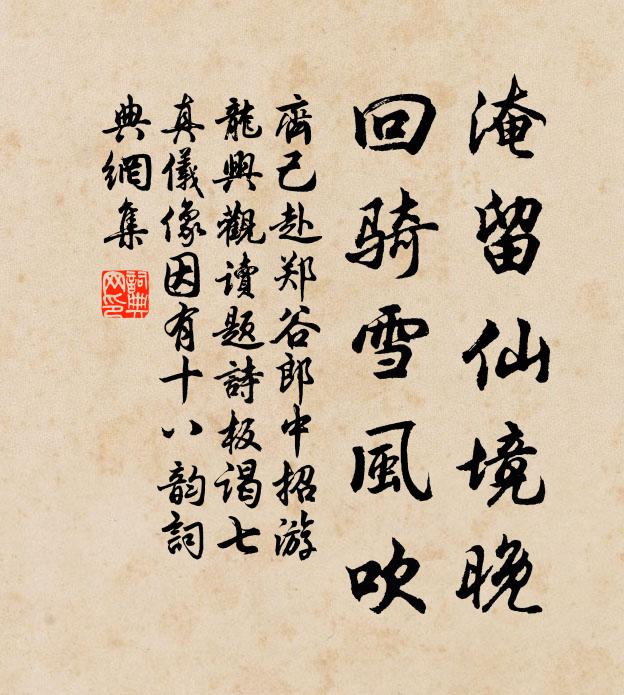 淹留仙境晚
回骑雪風吹
齊己赴郑谷郎中招游
龍興觀读题詩板谒七
真儀像因有十八韵詞
典網集
詞典
网印